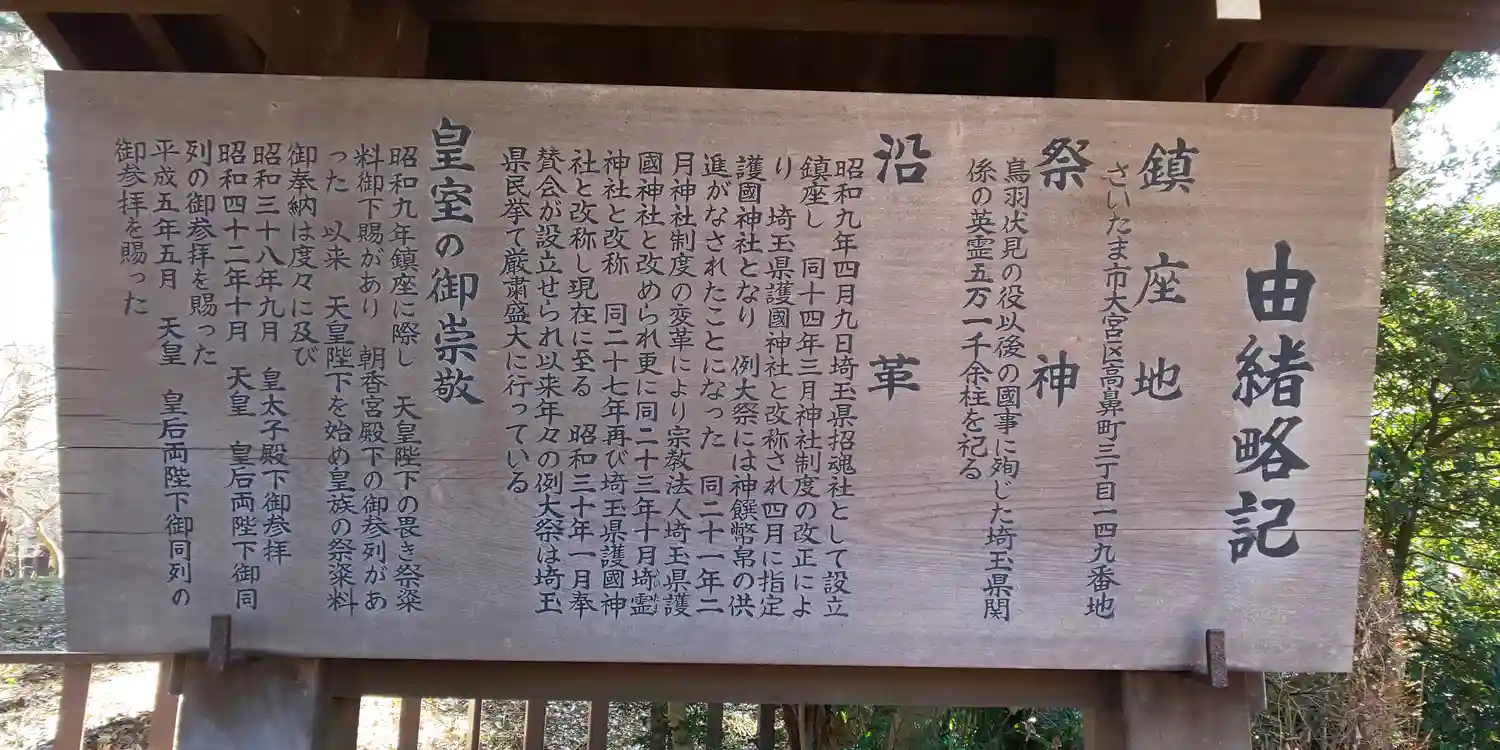 由緒略記
鎮座地
さいたま市大宮区高鼻町三丁目一四九番地
祭神
鳥羽伏見の役以後の國事に殉じた埼玉県関
係の英霊五万一千余柱を祀る
沿革
昭和九年四月九日埼玉県招魂社として設立
鎮座し　同十四年三月神社制度の改正によ
り　埼玉県護國神社と改称され四月に指定
護國神社となり　例大祭には神饌幣帛の供
進がなされたことになった　同二十一年二
月神社制度の変革により宗教法人埼玉県護
國神社と改められ更に同二十三年十月埼霊
神社と改称　同二十七年再び埼玉県護國神
社と改称し現在に至る　昭和三十年一月奉
賛会が設立せられ以来年々の例大祭は埼玉
県民挙て厳粛盛大に行っている
皇室の御崇敬
昭和九年鎮座に際し　天皇陛下の畏き祭粢
料御下賜があり　朝香宮殿下の御参列があ
った　以来　天皇陛下を始め皇族の祭粢料
御奉納は度々に及び
昭和三十八年九月　皇太子殿下御参拝
昭和四十二年十月　天皇　皇后両陛下御同
列の御参拝を賜った
平成五年五月　天皇　皇后両陛下御同列の
御参拝を賜った